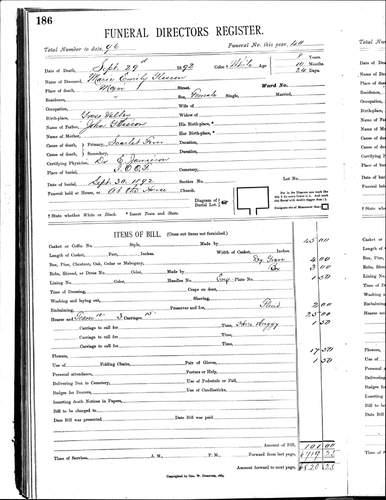 186
FUNERAL DIRECTORS REGISTER.
Total Number to date, 96 Funeral No. this year, 40
Date of Death, Sept. 29th 1892 Color † White Age 8 Years.
10 Months.
24 Days.
Name of Deceased, Marie Emily Gleason
Place of death, Street, Ward No.
Residence, " Sex, Female Single, Married,
Occupation, Wife of
Birth-place, Grass Valley Widow of
Name of Father, John Gleason His Birth-place, *
Name of Mother, Her Birth-place, *
Cause of death, Primary, Scarlet Fever Duration,
Cause of death, Secondary, Duration,
Certifying Physician, Dr E. Jamieson
Place of burial, I.O.O.F. Cemetery,
Date of burial, Sept. 30, 1892 Section No. Lot No.
Funeral held at House, or At the House Church.
Diagram of Burial Lot.
Put in the Diagram the number
Designate site of Monument thus
† State whether White or Black. * Insert Town and State.
ITEMS OF BILL. (Cross out items not furnished)
Casket or Coffin No. Style, Made by 45 00
Length of Casket, Feet, Inches. Width of Casket, Inches.
Box, Pine, Chestnut, Oak, Cedar or Mahogany, 4 00
Robe, Shroud, or Dress No. Color, Made by Box 3 00
Lining No. Color, Handles No. Eng. Plate No. 1 50
Time of Dressing, Crape on door,
Washing and laying out, Shaving,
Embalming, Preserver and Ice, Paid 2 00
Hearse and Team 10- 3 Carriages 15- 25 00
Carriage to call for Time, Hire Buggy 1 50
Carriage to call for Time,
Carriage to call for Time,
Flowers, 17 50
Use of Folding Chairs, Pair of Gloves, 1 50
Personal attendance, Posture or Help,
Delivering Box to Cemetery, Use of Pedestals or Pall,
Badges for Bearers, Use of Candlesticks,
Inserting death Notices in Papers,
Bill to be charged to
Date Bill was presented Date Bill was paid
Amount of Bill, 101 00
Time of Services A. M., P. M., Forward from last page, 6719 25
Amount forward to next page, 6820 25
Copyrighted by